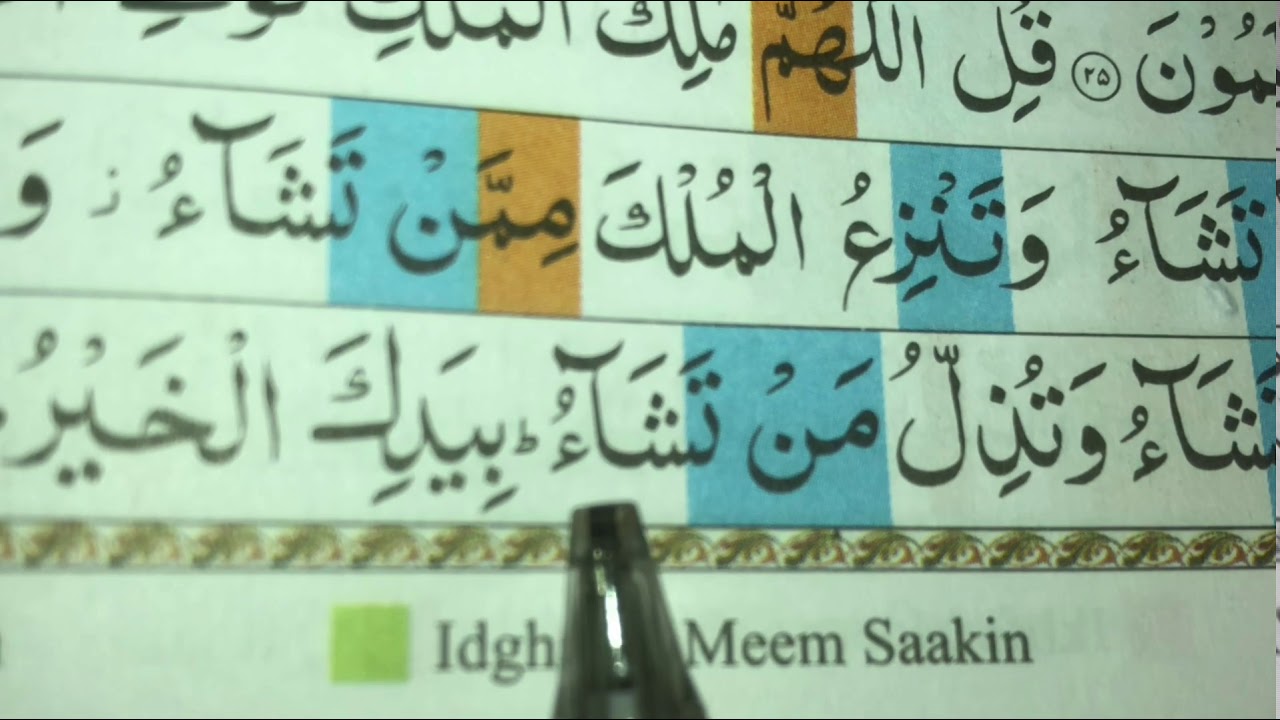 قُلِ اللّٰهُمَّ مٰلِكَ الْمُلْكِ ۝٢٥
تَشَآءُ وَتَنْزِعُ الْمُلْكَ مِمَّنْ تَشَآءُ ز وَ
تَشَآءُ وَتُذِلُّ مَنْ تَشَآءُ ط بِيَدِكَ الْخَيْرُ
Meem Saakin